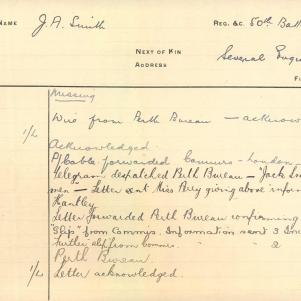 NAME J.A. Smith REG. &C. 50th Batt
NEXT OF KIN Several Enqu
ADDRESS
Missing
1/2 Wire from Perth Bureau — acknow
Acknowledged.
P/Cable forwarded Commrs. London
Telegram despatched Perth Bureau — "Jack Sm
men" — Letter sent Miss Percy giving above inform
Hantley.
Letter forwarded Perth Bureau confirming
"Slip" from Commrs. Information sent 3
Further slip from Commrs. " " 2
Perth Bureau
1/2 Letter acknowledged.